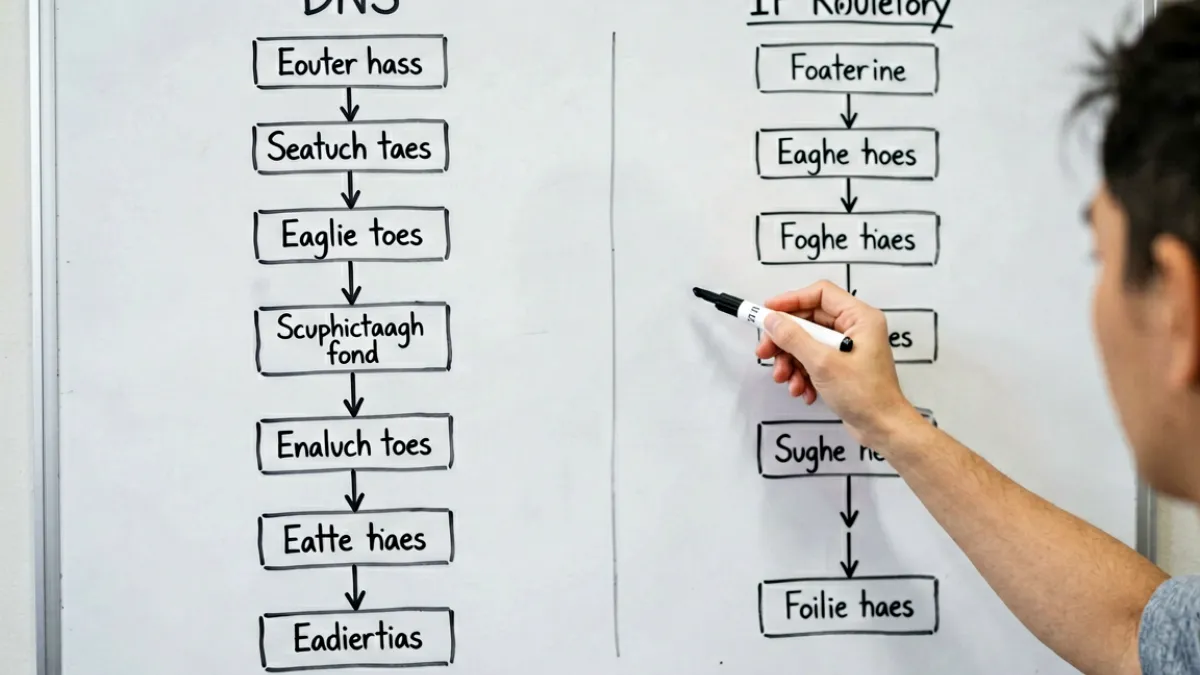 DNS
Eouter hass
Seatuch taes
Eaglie toes
Scuphictaagh
fond
Enaluch toes
Eatte hiaes
Eadiertias
IP Rouletory
Foaterine
Eaghe hoes
Foghe hiaes
Sughe
Foilie haes